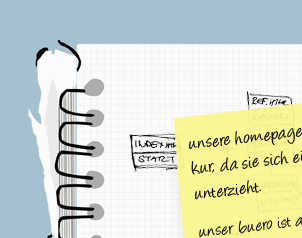 REF.
INDEX
START
unsere homepage
kur, da sie sich ei
unterzieht.
unser buero ist a